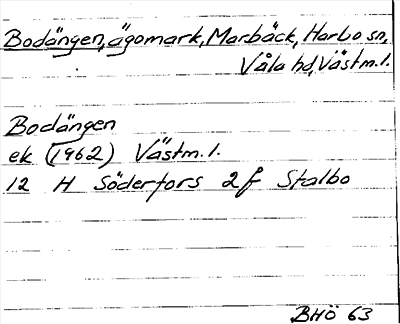 Bodängen, ägomark, Marbäck, Harbo sn,
Våla hd, Västm.l.
Bodängen
ek (1962) Västm.l.
12 H Söderfors 2f Stalbo
BHÖ 63